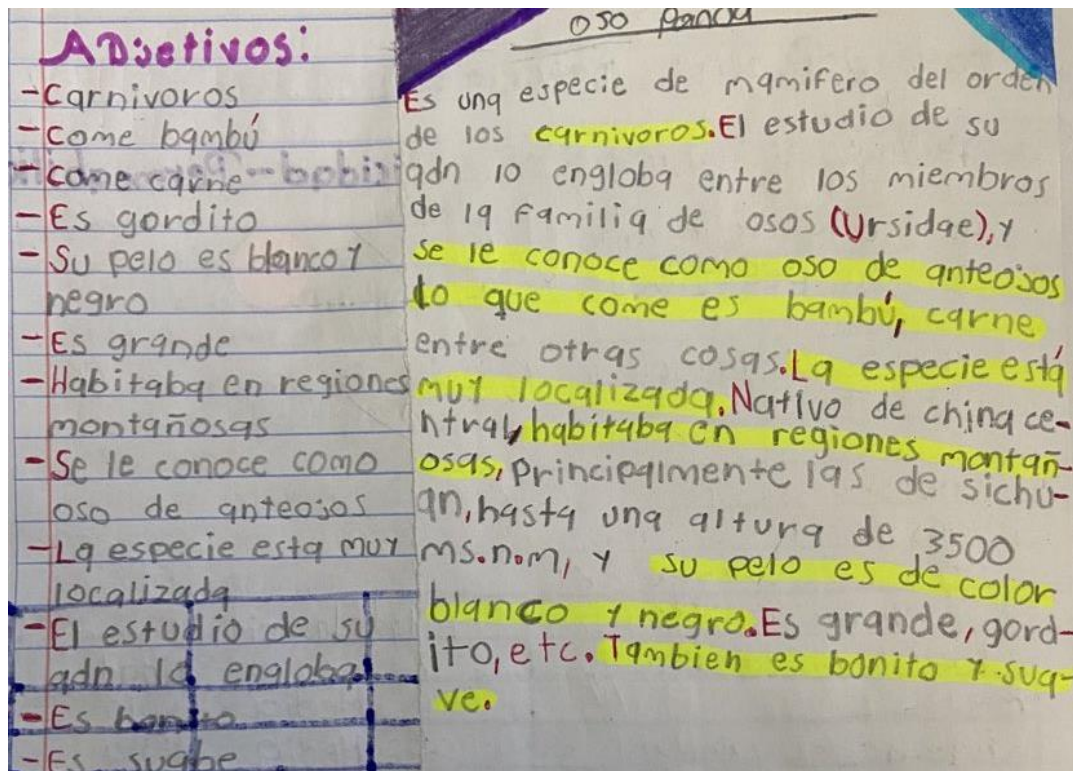 ADjetivos:
-Carnivoros
-come bambú
-come carne
-Es gordito
-Su pelo es blanco y
negro
-Es grande
-Habitaba en regiones
montañosas
-Se le conoce como
oso de anteojos
-La especie esta muy
localizada
-El estudio de su
adn lo engloba
-Es bonito
-Es suabe
oso panda
Es una especie de mamifero del orden
de los carnivoros. El estudio de su
adn lo engloba entre los miembros
de la familia de osos (Ursidae), y
se le conoce como oso de anteojos
lo que come es bambú, carne
entre otras cosas. La especie está
muy localizada. Nativo de china ce-
ntral, habitaba en regiones montañ-
osas, principalmente las de sichu-
an, hasta una altura de 3500
ms.n.m, y su pelo es de color
blanco y negro. Es grande, gord-
ito, etc. Tambien es bonito y sua-
ve.